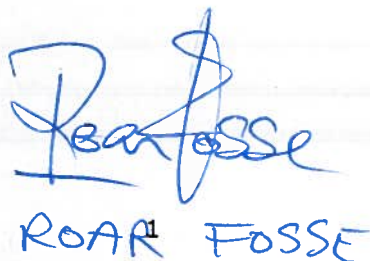 Roar Fosse
ROAR FOSSE
1